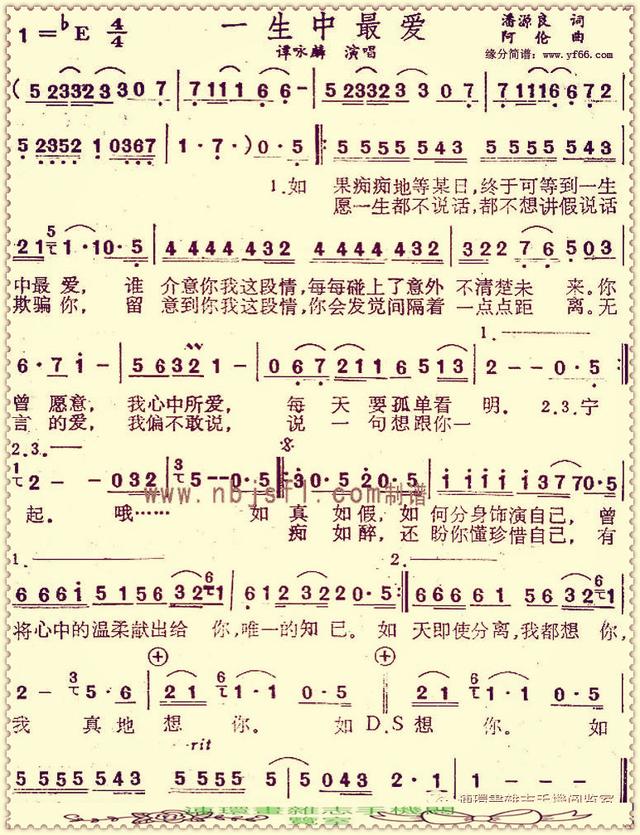 一生中最爱
1=♭E 4/4
潘源良 词
阿伦 曲
谭咏麟 演唱
缘分简谱: www.yf66.com
(5 52332 3 3 30 7 | 7 11 1 6 6 - | 5 52332 3 3 0 7 | 7 1116 6 7 2
5 2352 1 0367 | 1·7·) 0·5 ‖: 5 555 543 5 555 543
1.如 果痴痴地等某日,终于可等到一生
愿一生都不说话,都不想讲假说话
21 5 1·10·5 | 4 444 432 4 444 432 | 322 7·6 503
中最爱, 谁 介意你我这段情,每每碰上了意外 不清楚未 来。你
欺骗你, 留 意到你我这段情,你会发觉间隔着 一点点距 离。无
1.
6·7 1 - | 5 6 32 1 - | 0 67 211 6 513 | 2 - - 0·5 :‖
曾 愿意, 我心中所爱, 每 天 要孤单看 明。 2.3.宁
言 的爱, 我偏不敢说, 说 一 句想跟你一
2.3.
2 - - 032 | 3 5 - - 0·5 ‖: 3 0·5 2 0·5 | 1 111 1 3770·5
www.nbjsfl.com制谱
起。 哦…… 如 真 如假,如 何分身饰演自己, 曾
痴 如醉, 还 盼你懂珍惜自己, 有
1.
2.
6 661 5 156 32 6 1 | 6·12 3 220·5 :‖ 6 6661 6 156 32 6 1
将心中的温柔献出给 你,唯一的知 已。如 天即使分离,我都想 你,
2 - 3 5·6 | 21 6 1·1 0·5 ‖ 21 6 1·1 0·5
我 真 地 想 你。 如 D.S 想 你。 如
rit
5 555 543 5 555 5 | 5 5043 2·1· | 1 - - -